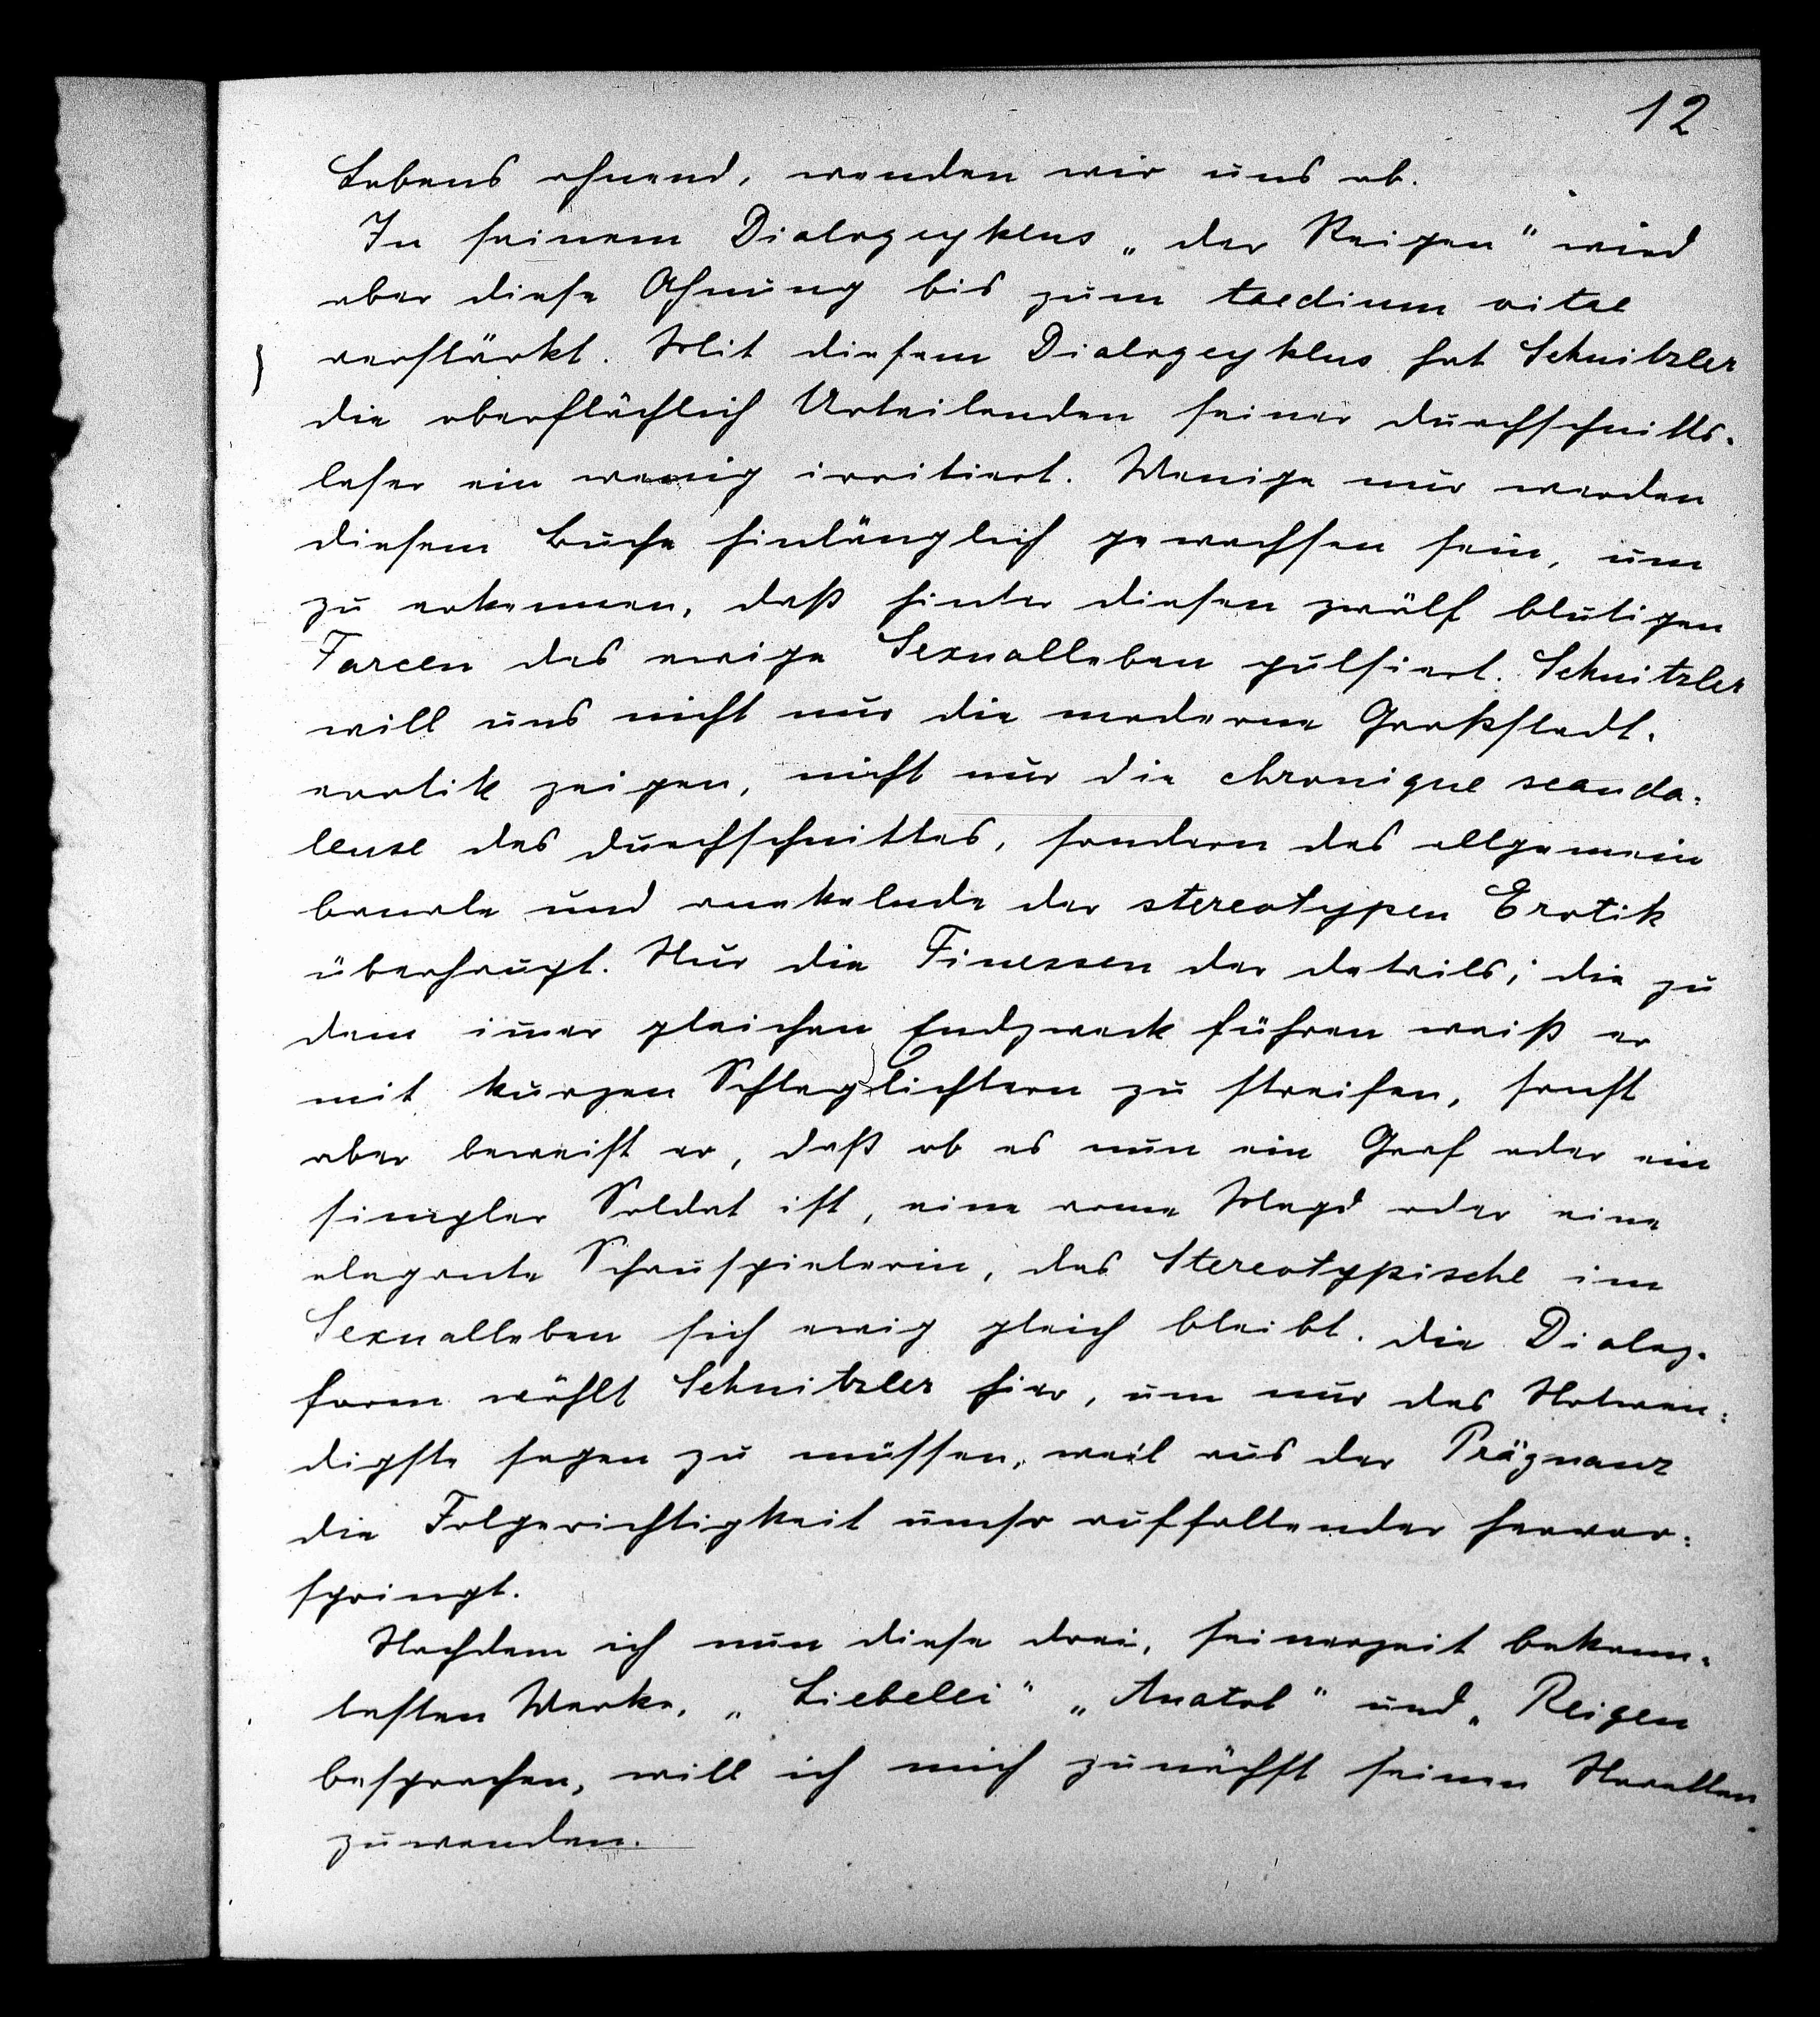 12
Lebens ahnend, wenden wir uns ab.
In seinem Dialogcyklus „der Reigen" wird
aber diese Ahnung bis zum taedium vitae
verstärkt. Mit diesem Dialogcyklus hat Schnitzler
die oberflächlich Urteilenden seiner Durchschnitts-
leser ein wenig irritiert. Wenige nur werden
diesem Buche hinlänglich gewachsen sein, um
zu erkennen, daß hinter diesen zwölf blutigen
Farcen das ewige Sexualleben pulsiert. Schnitzler
will uns nicht nur die moderne Großstadt-
erotik zeigen, nicht nur die chronique scanda=
leuse des Durchschnittes, sondern das allgemein
banale und anekelnde der stereotypen Erotik
überhaupt. Nur die Finessen der Details, die zu
dem im̄er gleichen Endzweck führen weiß er
mit kurzen Schlaglichtern zu streifen, sonst
aber beweist er, daß ob es nun ein Graf oder ein
simpler Soldat ist, eine arme Magd oder eine
elegante Schauspielerin, das Stereotypische im
Sexualleben sich ewig gleich bleibt. Die Dialog-
form wählt Schnitzler hier, um nur das Notwen=
digste sagen zu müssen, weil aus der Prägnanz
die Folgerichtigkeit umso auffallender hervor=
springt.
Nachdem ich nun diese drei, seinerzeit bekann-
testen Werke, „Liebelei" „Anatol" und „Reigen
besprochen, will ich mich zunächst seinen Novellen
zuwenden.